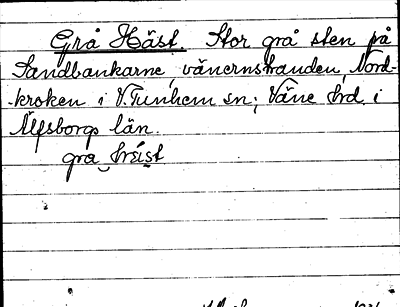 Grå Häst. Stor grå sten på
Sandbankarne, vänernstranden, Nord-
kroken i V. Tunhem sn; Väne hrd, i
Älfsborgs län.
gra